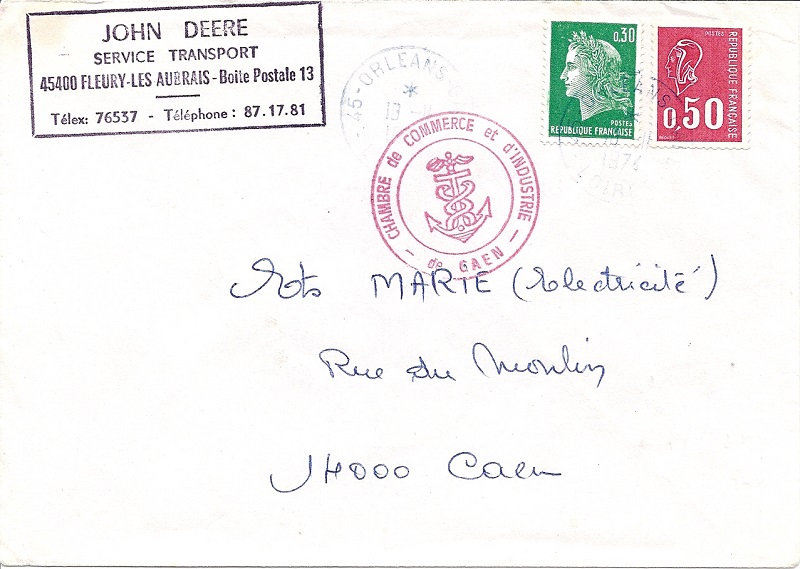 JOHN DEERE
SERVICE TRANSPORT
45400 FLEURY-LES AUBRAIS - Boîte Postale 13
Télex: 76537 - Téléphone: 87.17.81
45-ORLEANS
1974
0,30
POSTES
REPUBLIQUE FRANÇAISE
POSTES
REPUBLIQUE FRANÇAISE
0,50
CHAMBRE de COMMERCE et d'INDUSTRIE
- de CAEN -
Ets MARIE (Electricité)
Rue du Moulin
14000 Caen